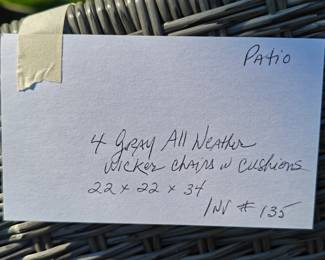 Patio
4 Gray All Weather
Wicker chairs w cushions
22 x 22 x 34
Inv # 135